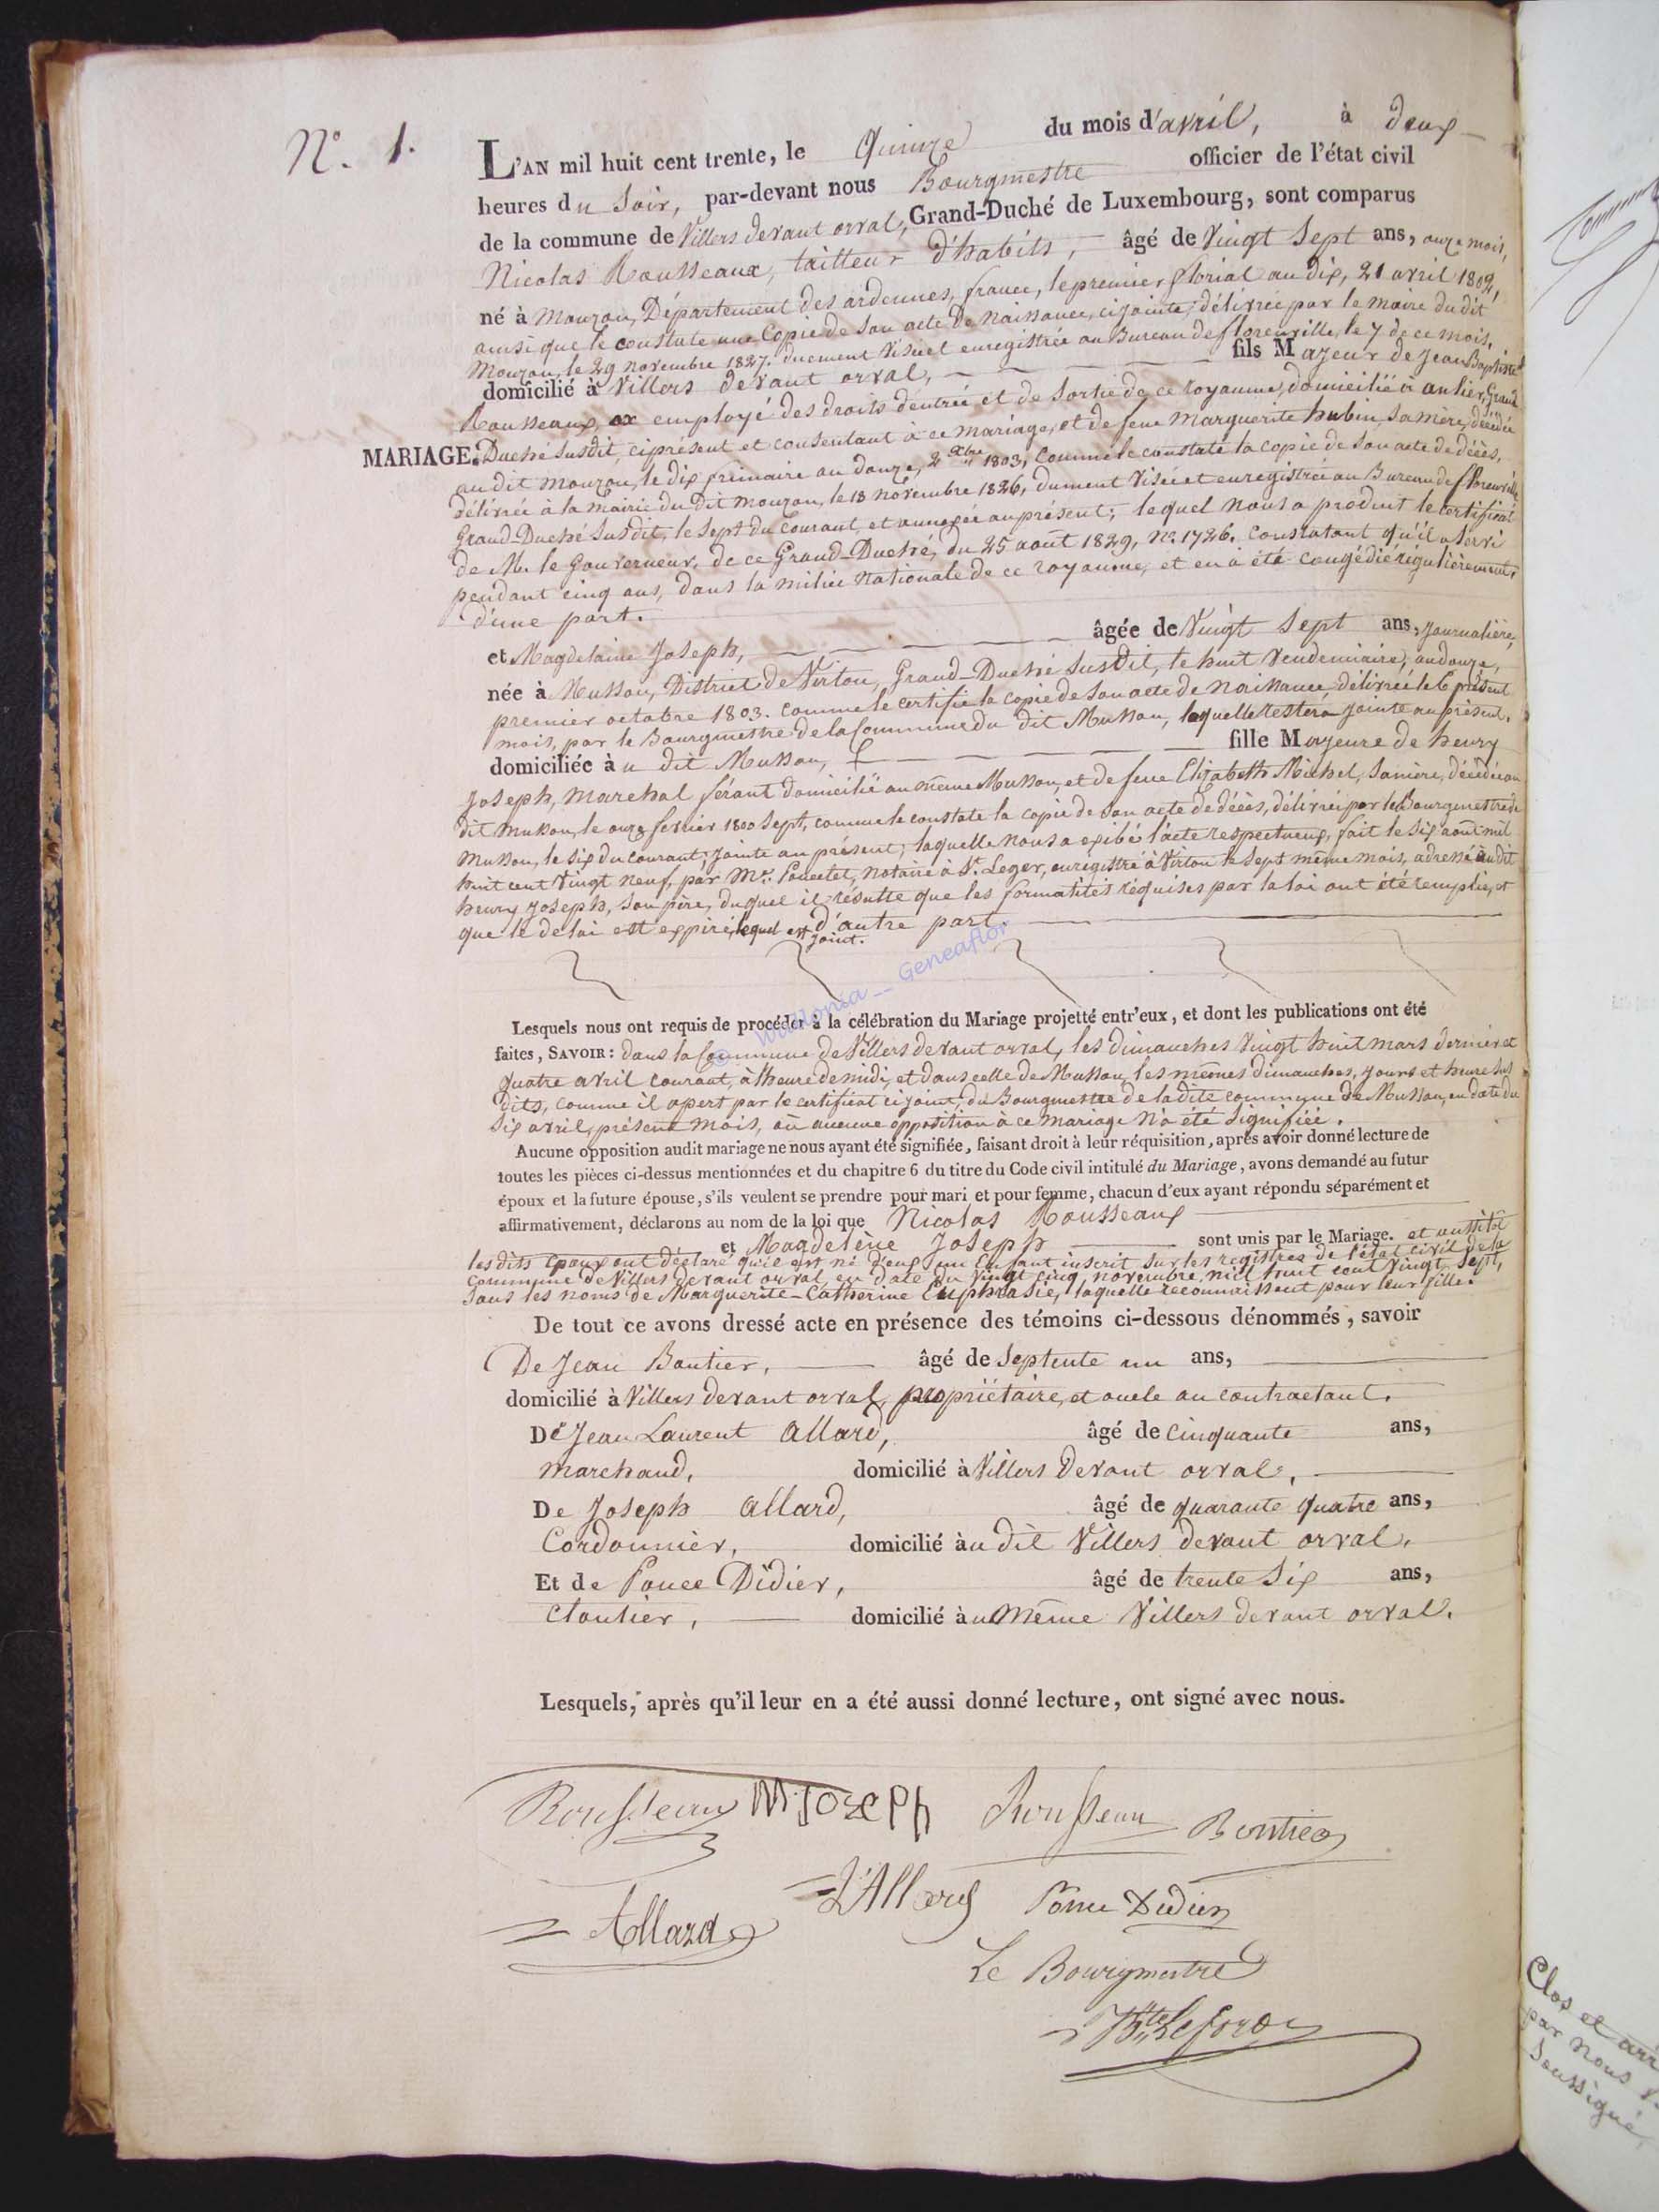 N°. 1.
L'AN mil huit cent trente, le Quinze du mois d'avril, à deux
heures du Soir, par-devant nous Bourgmestre officier de l'état civil
de la commune de Villers devant orval, Grand-Duché de Luxembourg, sont comparus
Nicolas Rousseaux, tailleur d'habits, âgé de Vingt Sept ans, onze mois,
né à Mouzon, Département des ardennes, france, le premier florial an dix, 21 avril 1802,
ainsi que le constate une Copie de son acte de Naissance, ci jointe, délivrée par le maire du dit
Mouzon, le 29 novembre 1827. duement Visée et enregistrée au Bureau de florenville, le 7 de ce mois.
domicilié à Villers devant orval, fils Majeur de Jean Baptiste
Rousseaux, ex employé des droits d'entrée et de Sortie de ce royaume, domicilié à anlier, Grand
MARIAGE. Duché Susdit, ci présent et consentant à ce mariage, et de feue Marguerite hubin, Sa mère, décédée
au dit Mouzon, le dix frimaire an douze, 2 Xbre 1803, Comme le constate la copie de son acte de décès,
délivrée à la Mairie du dit Mouzon, le 18 Novembre 1826, dument Visée et enregistrée au Bureau de florenville
Grand-Duché Susdit, le Sept du Courant, et annexée au présent; lequel Nous a produit le certificat
de M. le Gouverneur, de ce Grand-Duché, du 25 août 1829, No. 1726. Constatant qu'il a Servi
pendant cinq ans, dans la milice Nationale de ce royaume, et en a été congédié régulièrement,
d'une part.
et Magdelaine Joseph, âgée de Vingt Sept ans, Journalière,
née à Musson, District de Virton, Grand-Duché Susdit, le huit Vendemiaire, an douze,
premier octobre 1803. comme le certifie la copie de son acte de Naissance, délivrée le 6 présent
mois, par le Bourgmestre de la Commune du dit Musson, laquelle restera Jointe au présent.
domiciliée àu dit Musson, fille Majeure de henry
Joseph, Marchal férant domicilié au même Musson, et de feue Elizabeth Michel, Sa mère, décédée au
dit Musson, le onze fevrier 1800 Sept, comme le constate la copie de son acte de décès, délivrée par le Bourgmestre de
Musson, le Six du courant, Jointe au présent; laquelle Nous a exibé l'acte respectueux, fait le Six août mil
huit cent Vingt neuf, par Mr. Poncelet, Notaire à St. Leger, enregistré à Virton le Sept même mois, adressé au dit
henry Joseph, Son père, duquel il résulte que les formalités réquises par la loi ont été remplies, et
que le delai est expiré, lequel est joint. d'autre part.
© Wallonia_Geneaflor
Lesquels nous ont requis de procéder à la célébration du Mariage projetté entr'eux, et dont les publications ont été
faites, SAVOIR: dans la Commune de Villers devant orval, les dimanches Vingt huit mars dernier et
quatre avril courant, à l'heure de midi, et dans celle de Musson, les mêmes dimanches, jours et heure Sus
dits, comme il apert par le certificat ci joint, du Bourgmestre de la dite commune de Musson, en date du
Six avril, présent Mois, où aucune opposition à ce mariage N'a été Signifiée.
Aucune opposition audit mariage ne nous ayant été signifiée, faisant droit à leur réquisition, après avoir donné lecture de
toutes les pièces ci-dessus mentionnées et du chapitre 6 du titre du Code civil intitulé du Mariage, avons demandé au futur
époux et la future épouse, s'ils veulent se prendre pour mari et pour femme, chacun d'eux ayant répondu séparément et
affirmativement, déclarons au nom de la loi que Nicolas Rousseaux
et Magdelène Joseph sont unis par le Mariage. et aussitôt
les dits Epoux ont déclaré qu'il est né d'eux un Enfant inscrit Sur les registres de l'état civil de la
commune de Villers devant orval, en date du Vingt Cinq, novembre, mil huit cent Vingt Sept,
Sous les Noms de Marguerite-Catherine Euphrasie, laquelle reconnaissent pour leur fille.
De tout ce avons dressé acte en présence des témoins ci-dessous dénommés, savoir
De Jean Bontier, âgé de Septente un ans,
domicilié à Villers devant orval, propriétaire, et oncle au contractant.
De Jean Laurent Allard, âgé de Cinquante ans,
marchand, domicilié à Villers devant orval,
De Joseph Allard, âgé de quarante quatre ans,
Cordonnier, domicilié àu dit Villers devant orval.
Et de Ponce Didier, âgé de trente Six ans,
Cloutier, domicilié àu Même Villers devant orval.
Lesquels, après qu'il leur en a été aussi donné lecture, ont signé avec nous.
Rousseaux M. JOZEPh Rousseau Bontier
Allard L'Allard Ponce Didier
Le Bourgmestre
Clos et arr
par nous
Soussigné,